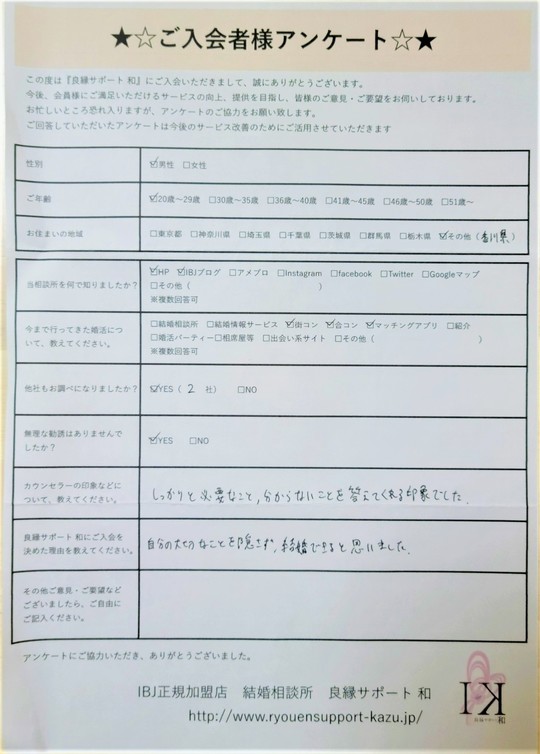 ★☆ご入会者様アンケート☆★
この度は『良縁サポート 和』にご入会いただきまして、誠にありがとうございます。
今後、会員様にご満足いただけるサービスの向上、提供を目指し、皆様のご意見・ご要望をお伺いしております。
お忙しいところ恐れ入りますが、アンケートのご協力をお願い致します。
ご回答していただいたアンケートは今後のサービス改善のためにご活用させていただきます
性別
☑男性 ☐女性
ご年齢
☑20歳～29歳 ☐30歳～35歳 ☐36歳～40歳 ☐41歳～45歳 ☐46歳～50歳 ☐51歳～
お住まいの地域
☐東京都 ☐神奈川県 ☐埼玉県 ☐千葉県 ☐茨城県 ☐群馬県 ☐栃木県 ☑その他（香川県）
当相談所を何で知りましたか？
☑HP ☑IBJブログ ☐アメブロ ☐Instagram ☐facebook ☐Twitter ☐Googleマップ
☐その他（ ）
※複数回答可
今まで行ってきた婚活につ
いて、教えてください。
☐結婚相談所 ☐結婚情報サービス ☑街コン ☑合コン ☑マッチングアプリ ☐紹介
☐婚活パーティー ☐相席屋等 ☐出会い系サイト ☐その他（ ）
※複数回答可
他社もお調べになりましたか？
☑YES（ 2 社） ☐NO
無理な勧誘はありませんで
したか？
☑YES ☐NO
カウンセラーの印象などに
ついて、教えてください。
しっかりと必要なこと，分からないことを答えてくれる印象でした．
良縁サポート 和にご入会を
決めた理由を教えてください。
自分の大切なことを隠さず，結婚できると思いました．
その他ご意見・ご要望など
ございましたら、ご自由に
ご記入ください。
アンケートにご協力いただき、ありがとうございました。
IBJ正規加盟店 結婚相談所 良縁サポート 和
http://www.ryouensupport-kazu.jp/